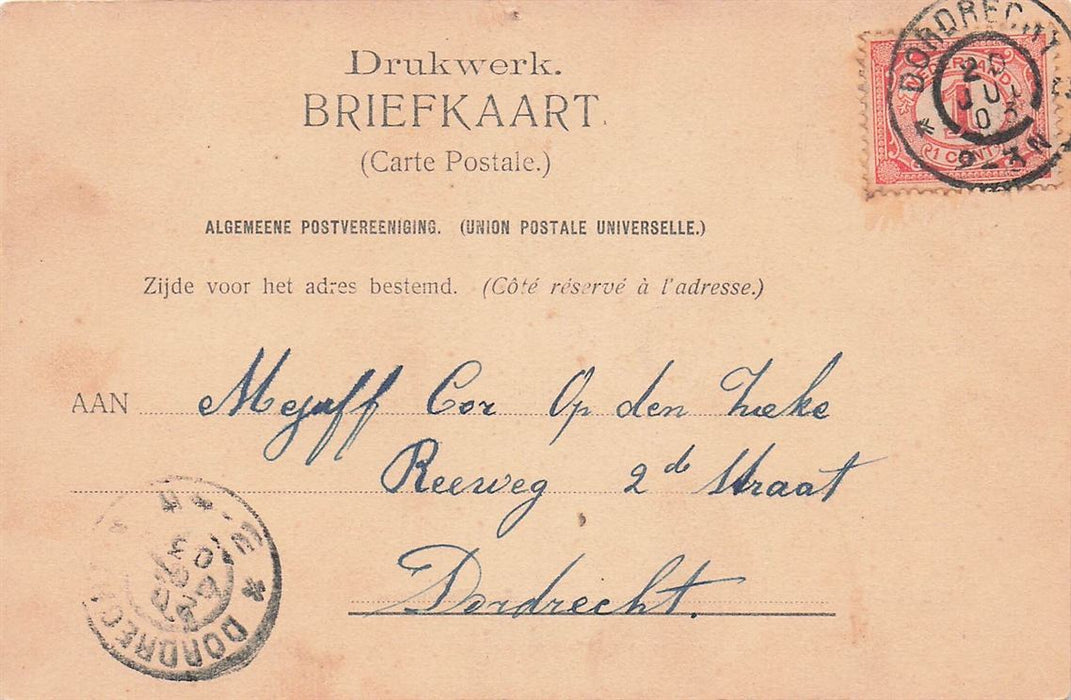 Drukwerk.
BRIEFKAART
(Carte Postale.)
ALGEMEENE POSTVEREENIGING. (UNION POSTALE UNIVERSELLE.)
Zijde voor het adres bestemd. (Côté réservé à l'adresse.)
AAN Mejuff Cor Op den Zieke
Reeweg 2d straat
Dordrecht.
DORDRECHT
NEDERLAND
1
1 CENT
DORDRECHT